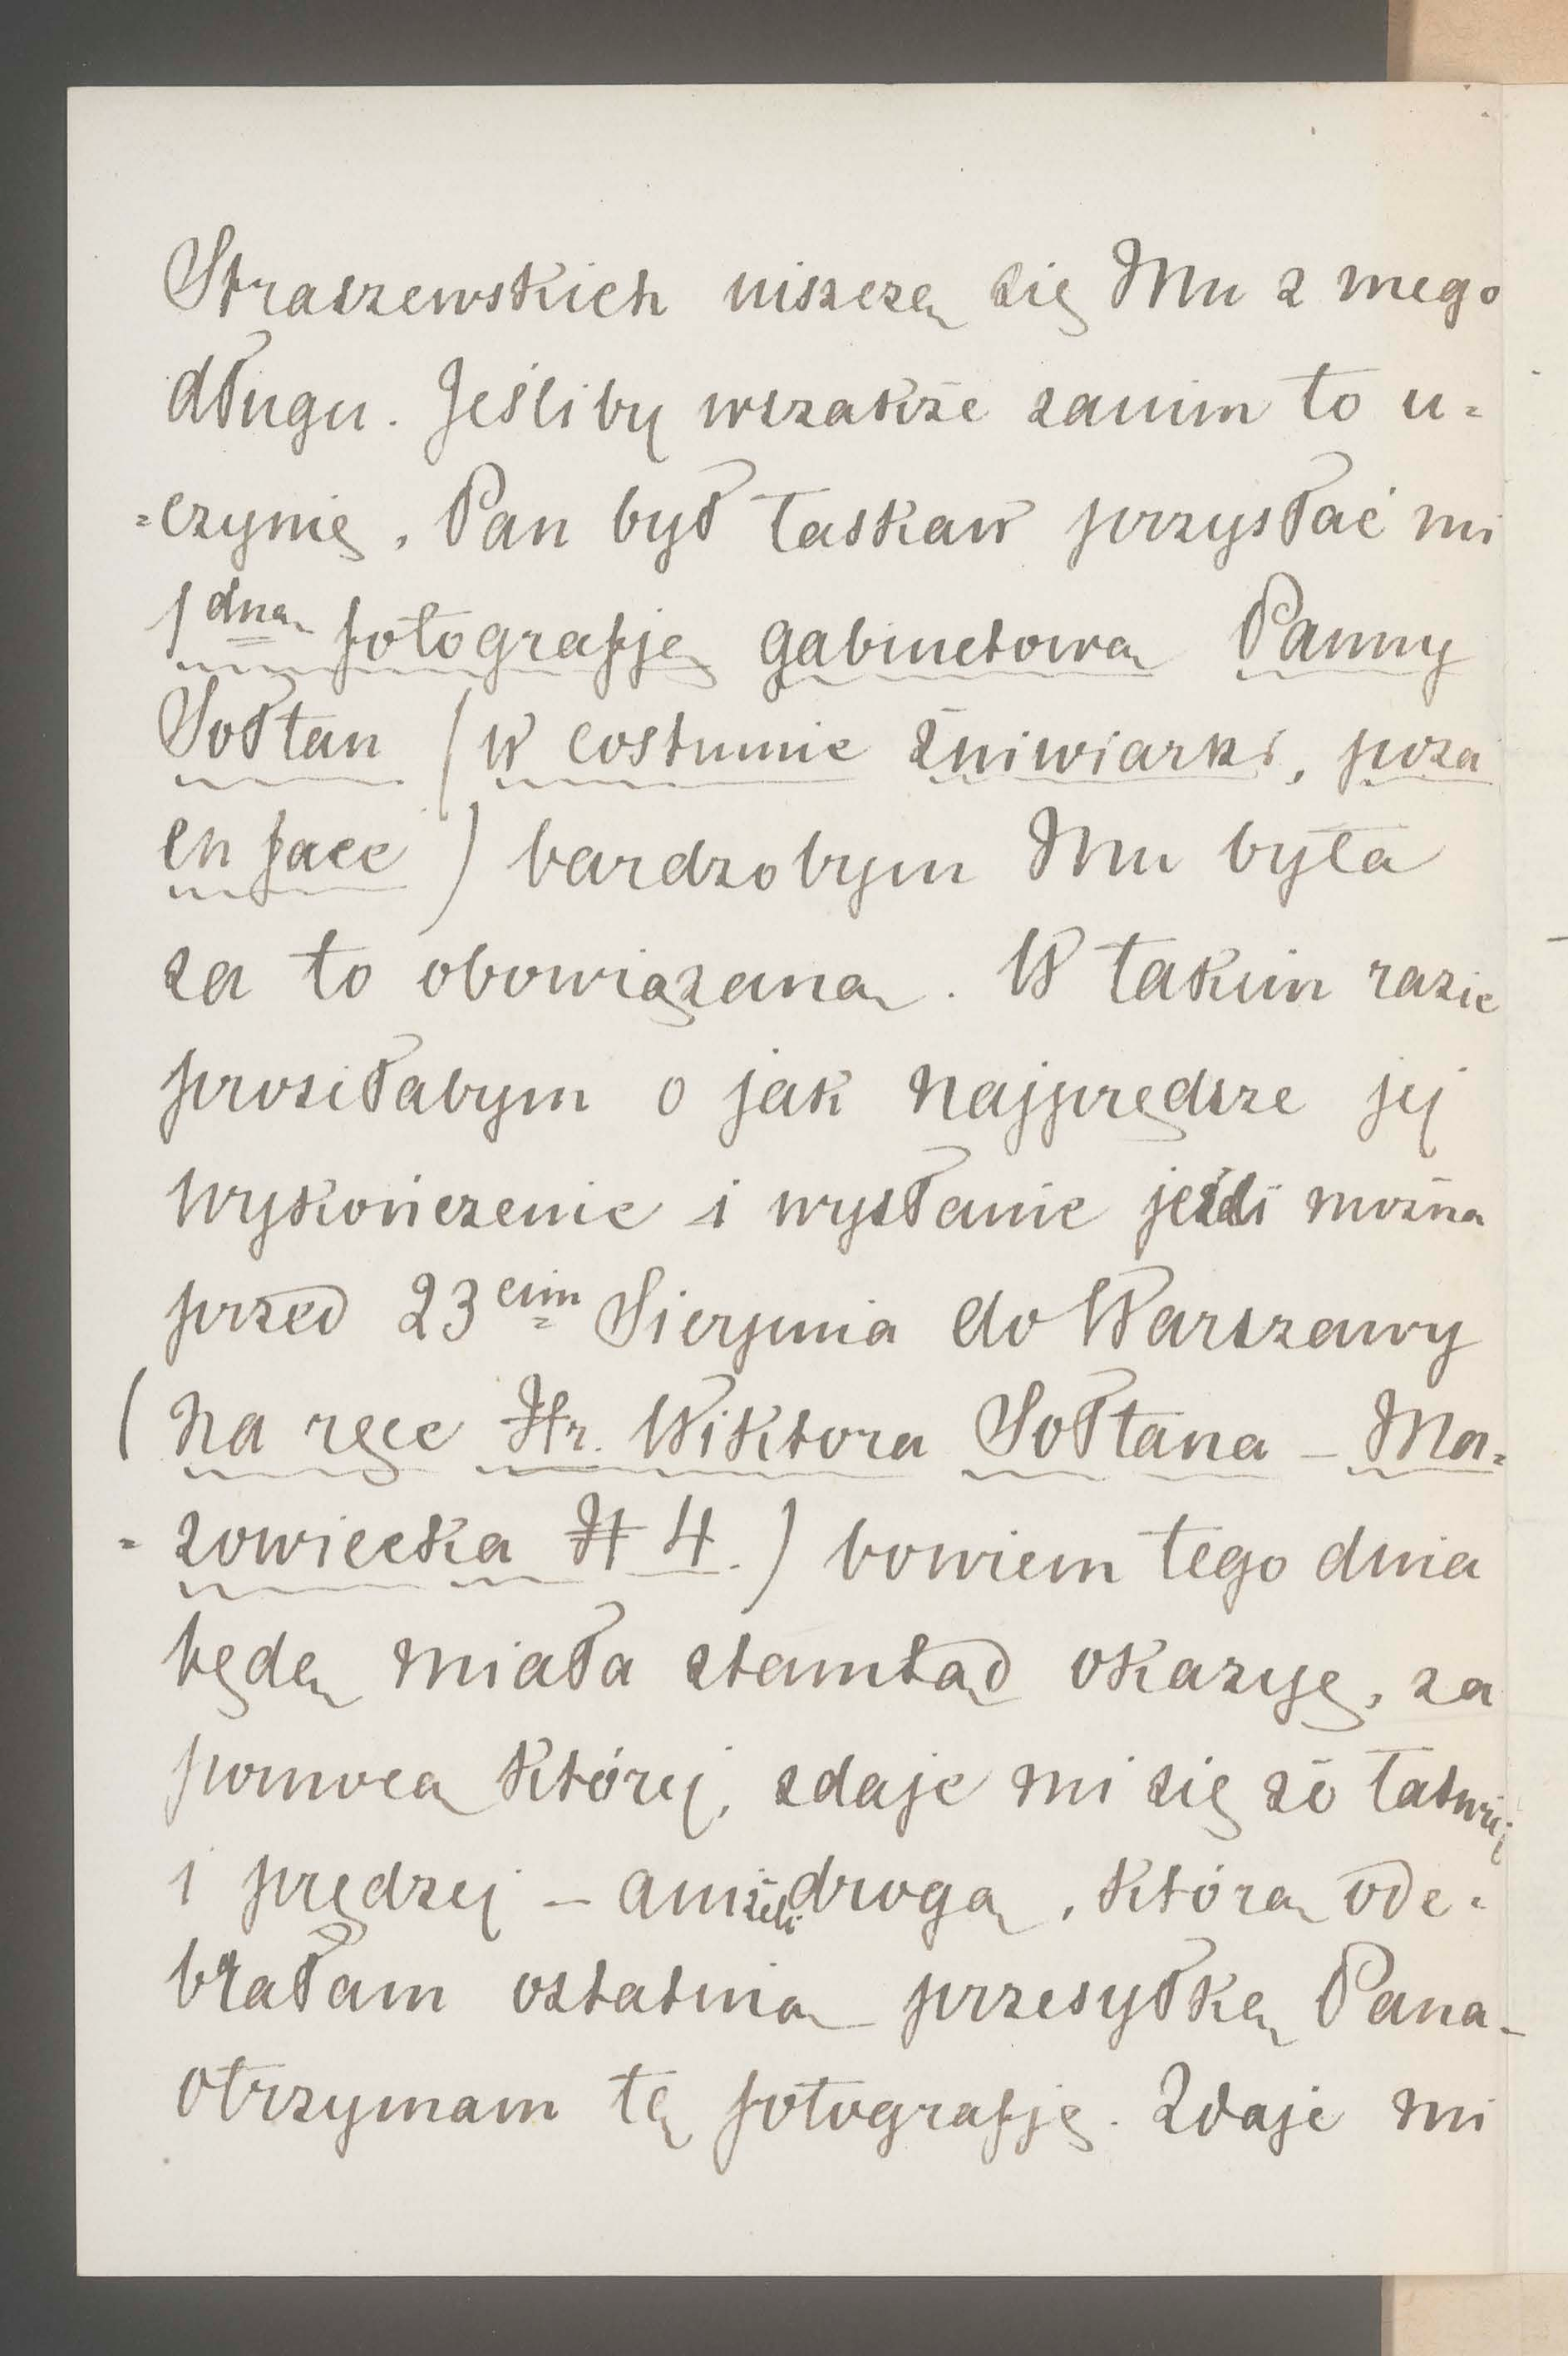 Straszewskich uiszczę się Mu z mego
długu. Jeśliby wszakże zanim to u=
=czynię, Pan był łaskaw przysłać mi
1dną fotografję gabinetową Panny
Sołtan (w costumie żniwiarki, poza
en face) bardzobym Mu była
za to obowiązaną. W takim razie
prosiłabym o jak najprędsze jej
wykończenie i wysłanie jeśli można
przed 23cim Sierpnia do Warszawy
(na ręce Hr. Wiktora Sołtana – Ma=
=zowiecka N 4.) bowiem tego dnia
będę miała ztamtąd okazyę, za
pomocą której, zdaje mi się że łatwiej
i prędzej – aniżeli drogą, którą ode=
brałam ostatnią przesyłkę Pana –
otrzymam tę fotografję. Zdaje mi